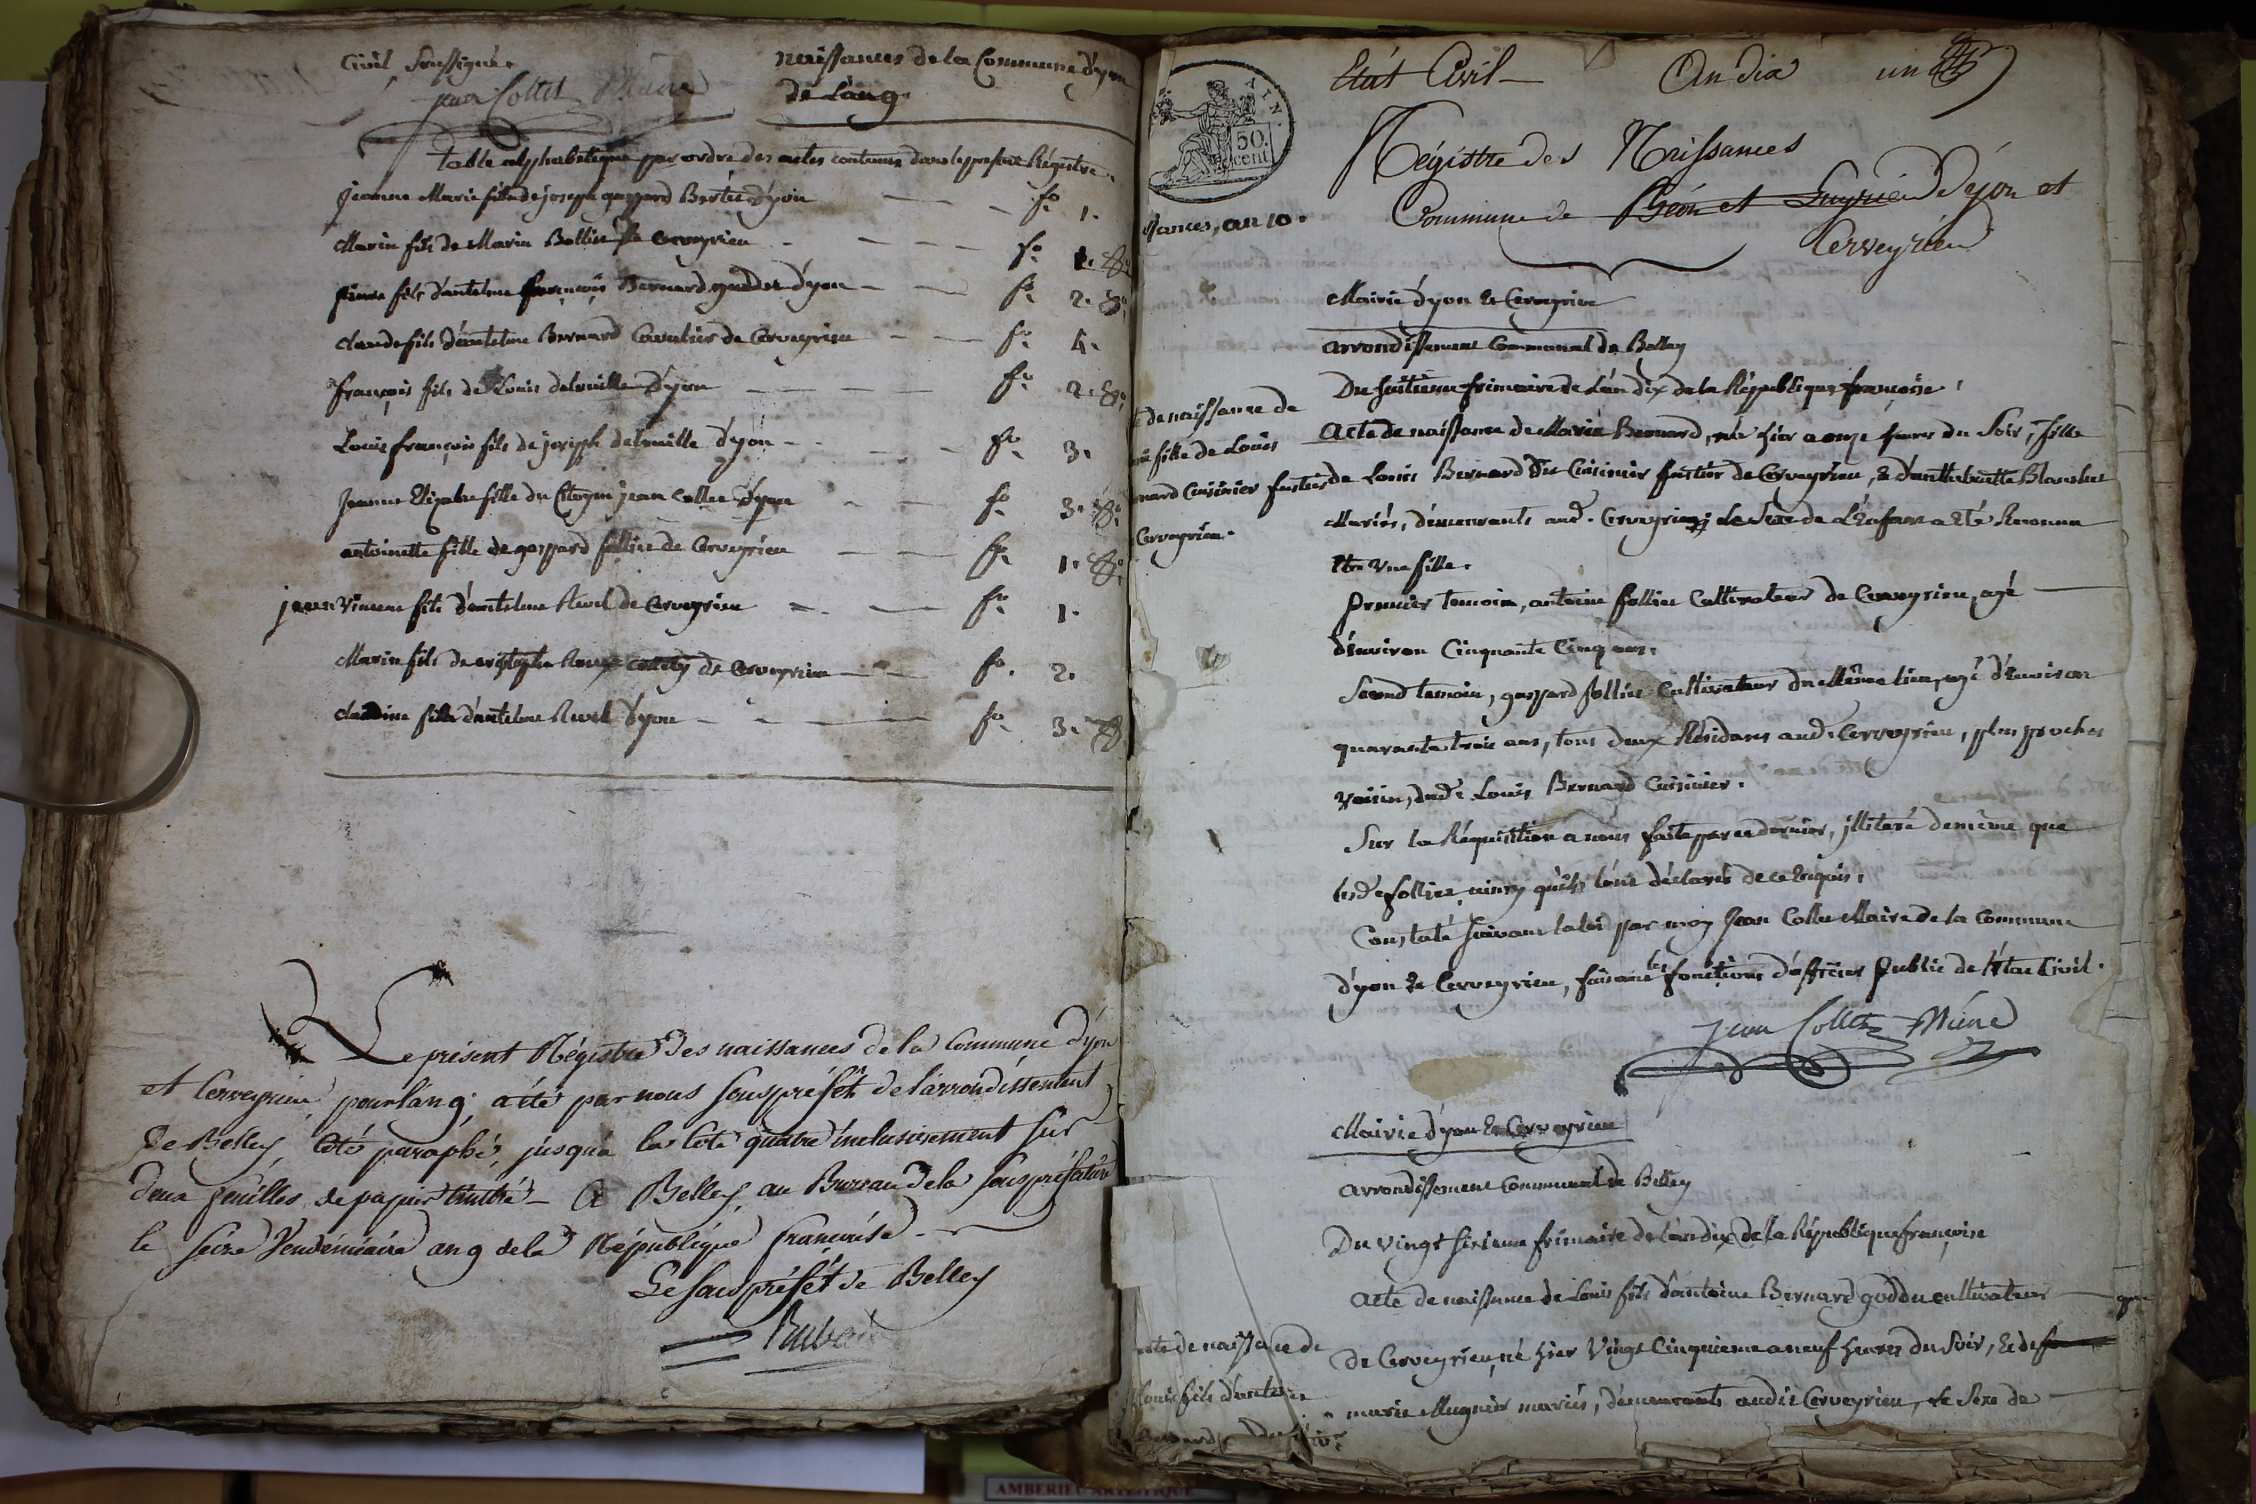 Civil soussigné.
Jean Collet Miéne
naissances de la Commune d'yon
de L'an 9.
table alphabétique par ordre des actes contenus dans le present Régistre.
Jeanne Marie fille de joseph gaspard Bertet d'yon fo. 1.
Marin fils de Marin Bollier de Cerveyrieu fo. 1.
fils d'antelme françois Bernard d'yon fo. 2.
Claude fils d'antelme Bernard Cavalier de Cerveyrieu fo. 4.
françois fils de Louis delouille d'yon fo. 2.
Louis françois fils de joseph delouille d'yon fo. 3.
Jeanne Elizabe fille du Citoyen jean Collet d'yon fo. 3.
antoinette fille de gaspard follier de Cerveyrieu fo. 1.
jean Vincent fils d'antelme Revel de Cerveyrieu fo. 1.
Marin fils de de Cerveyrieu fo. 2.
Claudine fille d'antelme Revel d'yon fo. 3.
Le présent Régistre des naissances de la Commune d'yon
et Cerveyrieu pour l'an 9, a été par nous souspréfêt de l'arrondissement
de Belley, coté paraphé, jusqu'a la cote quatre inclusivement sur
deux feuilles de papier timbré - A Belley, au Bureau de la souspréfecture
le seize Vendémiaire an 9 de la République française
Le souspréfêt de Belley
AIN.
50.
cent
Etat Civil - An dix un
Régistre des Naissances
Commune de Béon et Luyrieu d'yon et
Cerveyrieu
ssances, an 10.
Mairie d'yon & Cerveyrieu
arrondissement Communal de Belley
Du huitieme frimaire de L'an dix de la République françoise.
de naissance de
fille de Louis
nard Cuisinier fustier
Cerveyrieu.
Acte de naissance de Marie Bernard, née hier a onze heures du Soir, fille
de Louis Bernard Cuisinier fustier de Cerveyrieu, & d'anthelmette Blanchet
Mariés, démeurants aud. Cerveyrieu; Le Sexe de L'Enfant a été Reconnu
être une fille.
premier temoin, antoine follier Cultivateur de Cerveyrieu, agé
d'environ Cinquante Cinq ans.
Second temoin, gaspard follier Cultivateur du Même lieu, agé d'Environ
quarante trois ans, tous deux Résidans aud. Cerveyrieu, plus proches
voisins, dud. Louis Bernard Cuisinier.
Sur la Réquisition a nous faite par ce dernier, illiteré de même que
lesd. follier, ainsy qu'ils l'ont déclarés de ce Enquis.
Constaté suivant la loi par moy Jean Collet Maire de la Commune
d'yon & Cerveyrieu, faisant les fonctions d'officier Public de l'état Civil.
Jean Collet Miéne
Mairie d'yon & Cerveyrieu
arrondissement Communal de Belley
Du vingt sixieme frimaire de l'an dix de la République françoise
acte de naissance de
Louis fils d'antoine
Acte de naissance de Louis fils d'antoine Bernard goddu cultivateur
de Cerveyrieu, né hier Vingt Cinquieme a neuf heures du Soir, & de
marie Mugnier mariés, démeurants audit Cerveyrieu, Le Sexe de
AMBERIEU ARTISTIQUE